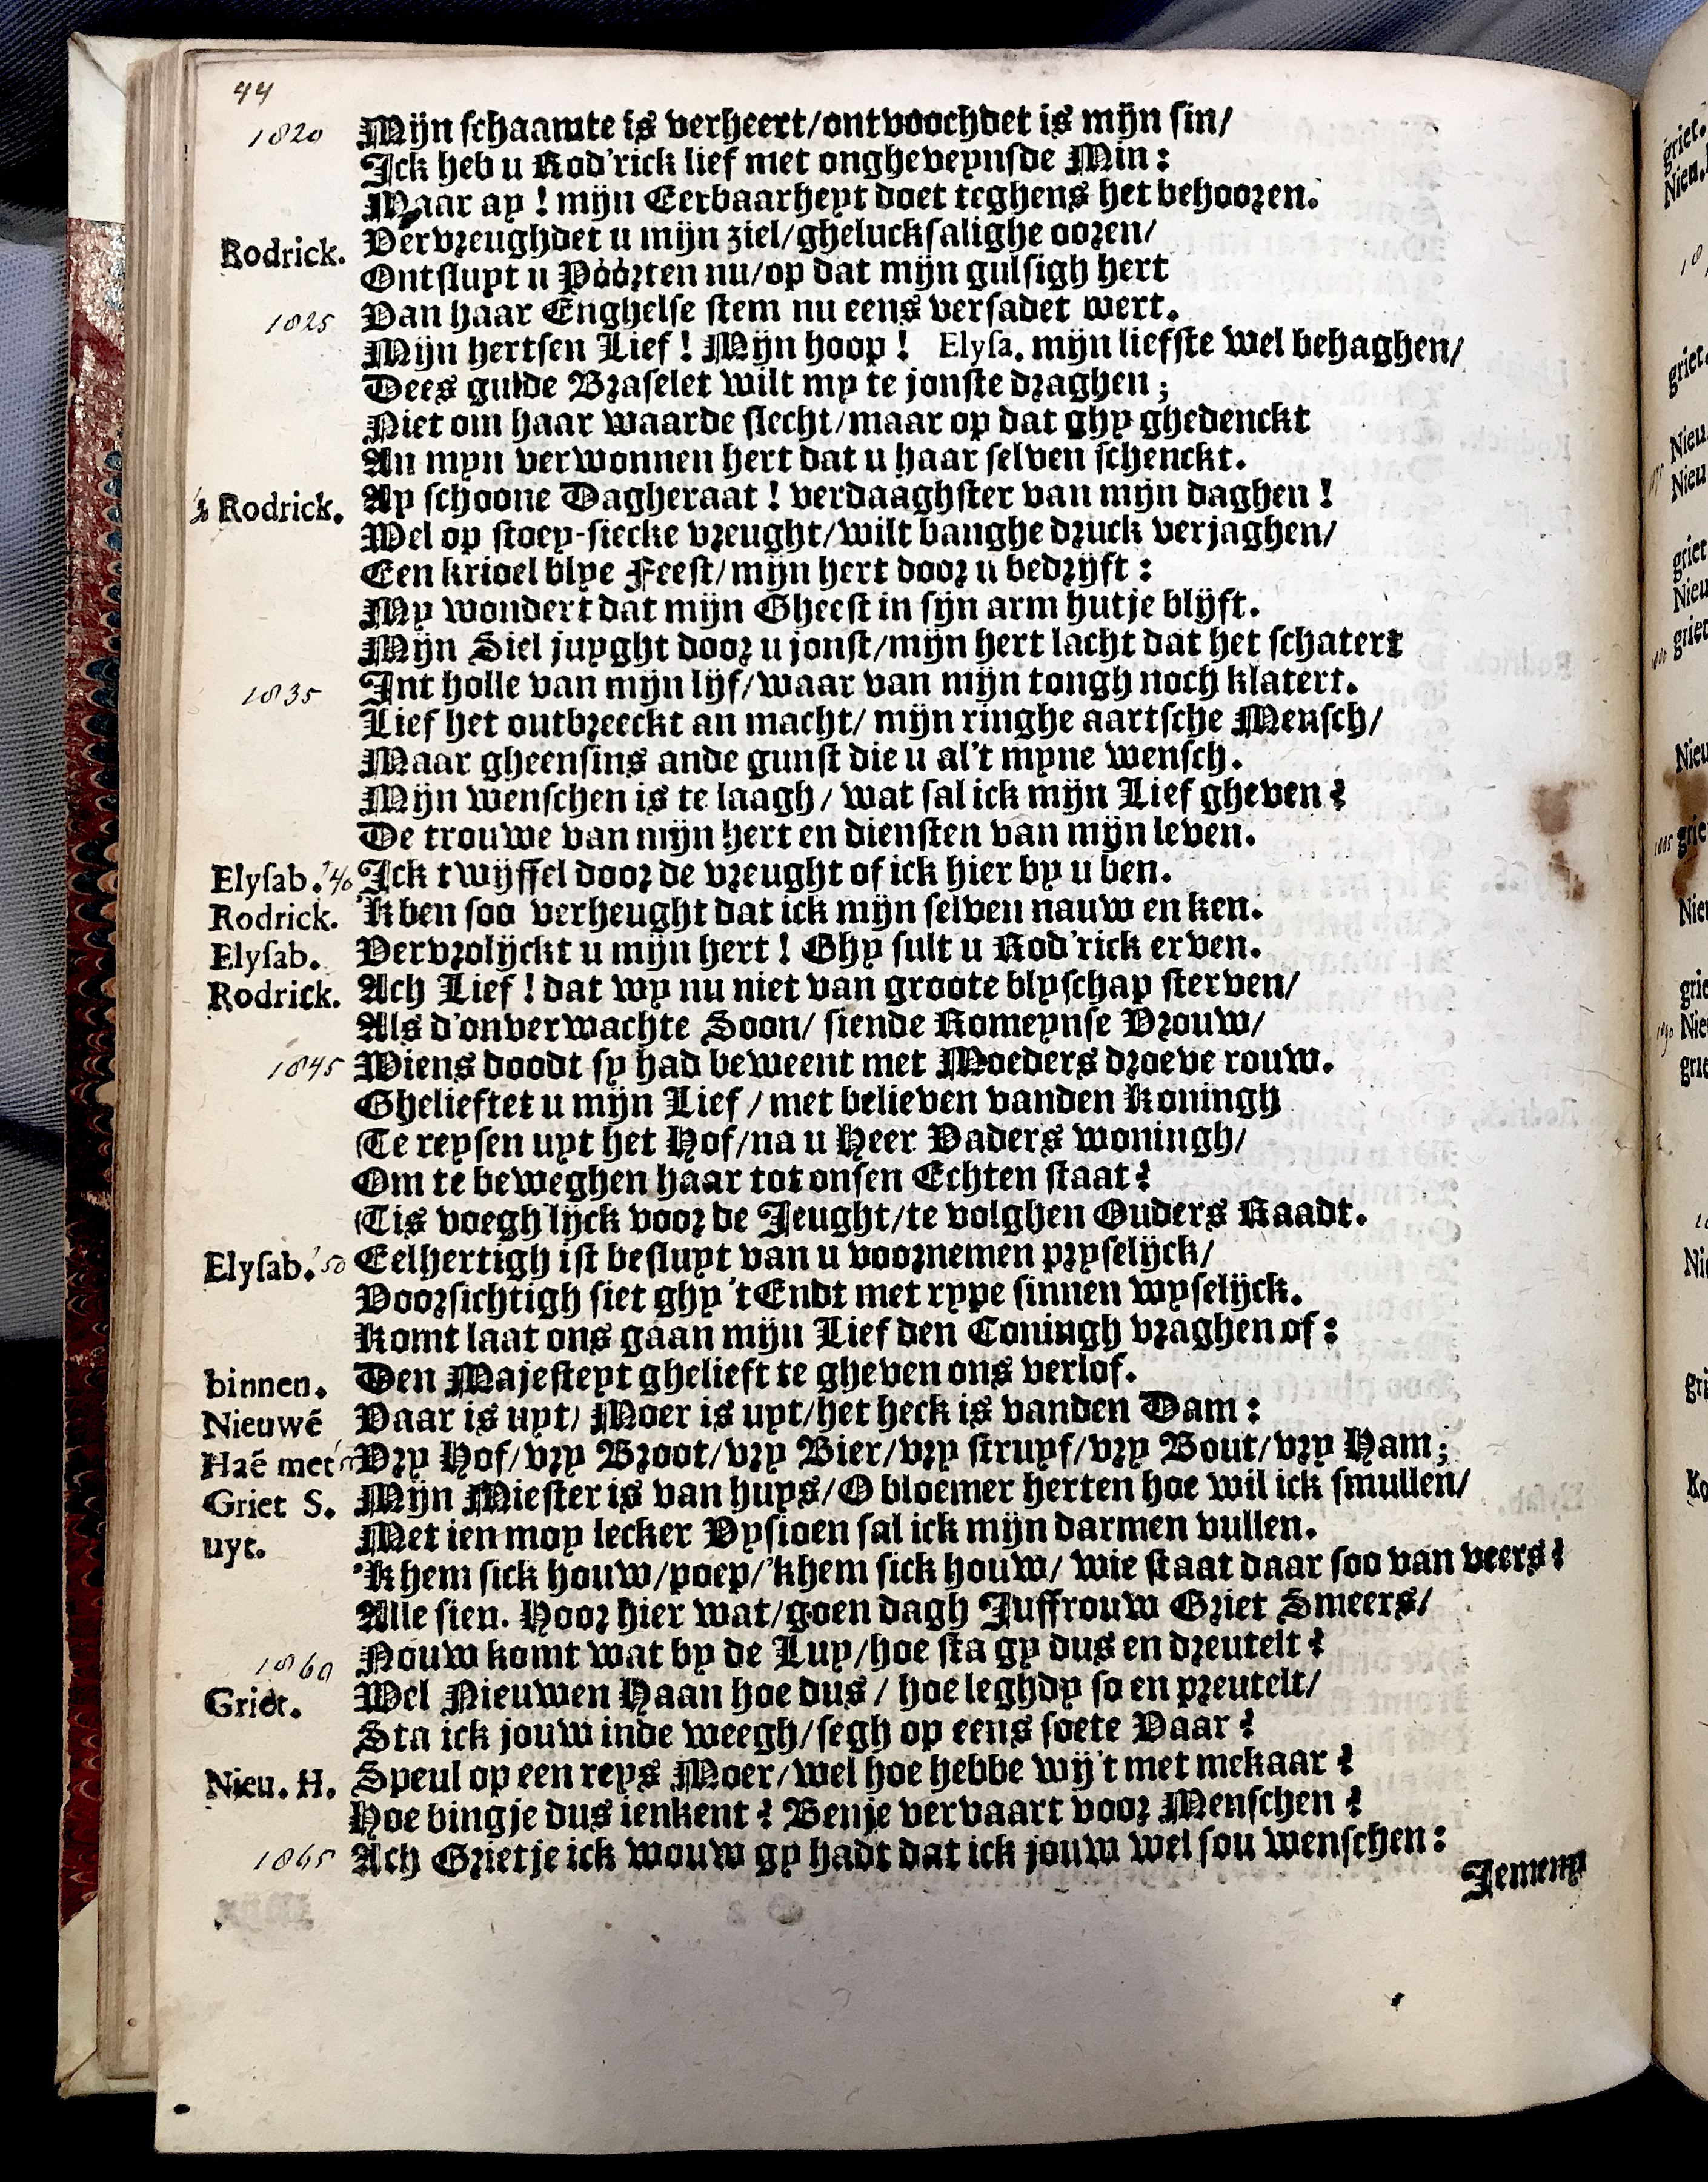 44
1820 Mijn schaamte is verheert/ontvoochdet is mijn sin/
Ick heb u Rod'rick lief met ongheveynsde Min:
Maar ay! mijn Eerbaarheyt doet teghens het behooren.
Rodrick. Vervreughdet u mijn ziel/ghelucksalighe ooren/
Ontsluyt u Póórten nu/op dat mijn gulsigh hert
1825 Van haar Enghelse stem nu eens versadet wert.
Mijn hertsen Lief! Mijn hoop! Elysa. mijn liefste wel behaghen/
Dees gulde Braselet wilt my te jonste draghen;
Niet om haar waarde slecht/maar op dat ghy ghedenckt
An myn verwonnen hert dat u haar selven schenckt.
Rodrick. Ay schoone Dagheraat! verdaaghster van mijn daghen!
Wel op stoey-siecke vreught/wilt banghe druck verjaghen/
Een krioel blye Feest/mijn hert door u bedrijft:
My wondert dat mijn Gheest in sijn arm hutje blijft.
Mijn Siel juyght door u jonst/mijn hert lacht dat het schatert
1835 Int holle van mijn lijf/waar van mijn tongh noch klatert.
Lief het outbreeckt an macht/ mijn ringhe aartsche Mensch/
Maar gheensins ande gunst die u al't myne wensch.
Mijn wenschen is te laagh/ wat sal ick mijn Lief gheven?
De trouwe van mijn hert en diensten van mijn leven.
Elysab. '40 Ick twijffel door de vreught of ick hier by u ben.
Rodrick. 'K ben soo verheught dat ick mijn selven nauw en ken.
Elysab. Vervrolijckt u mijn hert! Ghy sult u Rod'rick erven.
Rodrick. Ach Lief! dat wy nu niet van groote blyschap sterven/
Als d'onverwachte Soon/ siende Romeynse Vrouw/
1845 Wiens doodt sy had beweent met Moeders droeve rouw.
Ghelieftet u mijn Lief/ met believen vanden Koningh
Te reysen uyt het Hof/na u Heer Vaders woningh/
Om te beweghen haar tot onsen Echten staat?
Tis voegh'lijck voor de Jeught/te volghen Ouders Raadt.
Elysab. '50 Eelhertigh ist besluyt van u voornemen pryselijck/
Voorsichtigh siet ghy 't Endt met rype sinnen wyselijck.
Komt laat ons gaan mijn Lief den Coningh vraghen of:
binnen. Den Majesteyt ghelieft te gheven ons verlof.
Nieuwē Vaar is uyt/ Moer is uyt/het heck is vanden Dam:
Haē met Vry Hof/vry Broot/vry Bier/vry struyf/vry Bout/vry Ham;
Griet S. Mijn Miester is van huys/O bloemer herten hoe wil ick smullen/
uyt. Met ien moy lecker Vysioen sal ick mijn darmen vullen.
'K hem sick houw/poep/'khem sick houw/ wie staat daar soo van veers?
Alle sien. Hoor hier wat/goen dagh Juffrouw Griet Smeers/
1860 Nouw komt wat by de Luy/hoe sta gy dus en dreutelt?
Griet. Wel Nieuwen Haan hoe dus/ hoe leghdy so en preutelt/
Sta ick jouw inde weegh/segh op eens soete Vaar?
Nieu. H. Speul op een reys Moer/wel hoe hebbe wij't met mekaar?
Hoe bingje dus ienkent? Benje vervaart voor Menschen?
1865 Ach Grietje ick wouw gy hadt dat ick jouw wel sou wenschen:
Jemeny